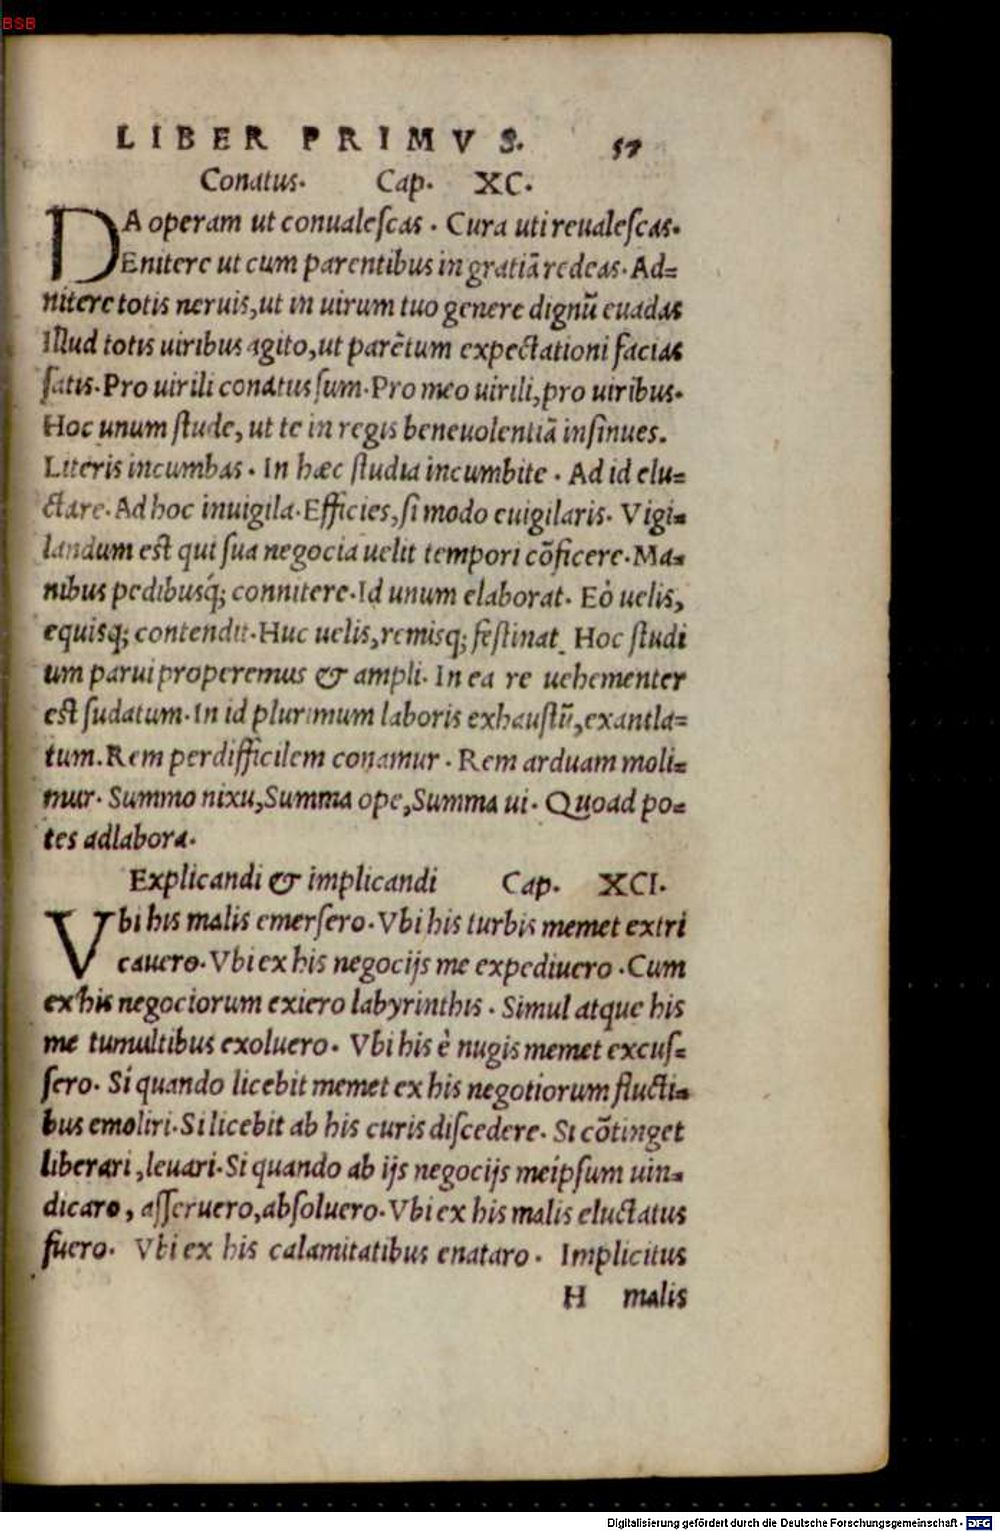 BSB
LIBER PRIMVS. 57
Conatus. Cap. XC.
DA operam ut conualeſcas. Cura uti reualeſcas.
Enitere ut cum parentibus in gratiã redeas. Ad=
nitere totis neruis, ut in uirum tuo genere dignũ euadas
Illud totis uiribus agito, ut parẽtum expectationi facias
ſatis. Pro uirili conatus ſum. Pro meo uirili, pro uiribus.
Hoc unum ſtude, ut te in regis beneuolentiã inſinues.
Literis incumbas. In hæc ſtudia incumbite. Ad id elu=
ctare. Ad hoc inuigila. Efficies, ſi modo euigilaris. Vigi=
landum eſt qui ſua negocia uelit tempori cõficere. Ma=
nibus pedibusq́; connitere. Id unum elaborat. Eò uelis,
equisq; contendit. Huc uelis, remisq; feſtinat. Hoc ſtudi
um parui properemus & ampli. In ea re uehementer
eſt ſudatum. In id plurimum laboris exhauſtũ, exantla=
tum. Rem perdifficilem conamur. Rem arduam moli=
mur. Summo nixu, Summa ope, Summa ui. Quoad po=
tes adlabora.
Explicandi & implicandi Cap. XCI.
Vbi his malis emerſero. Vbi his turbis memet extri
cauero. Vbi ex his negocijs me expediuero. Cum
ex his negociorum exiero labyrinthis. Simul atque his
me tumultibus exoluero. Vbi his è nugis memet excuſ=
ſero. Si quando licebit memet ex his negotiorum fluctí=
bus emoliri. Si licebit ab his curis diſcedere. Si cõtinget
liberari, leuari. Si quando ab ijs negocijs meipſum uin=
dicaro, aſſeruero, abſoluero. Vbi ex his malis eluctatus
fuero. Vbi ex his calamitatibus enataro. Implicitus
H malis
Digitalisierung gefördert durch die Deutsche Forschungsgemeinschaft - DFG